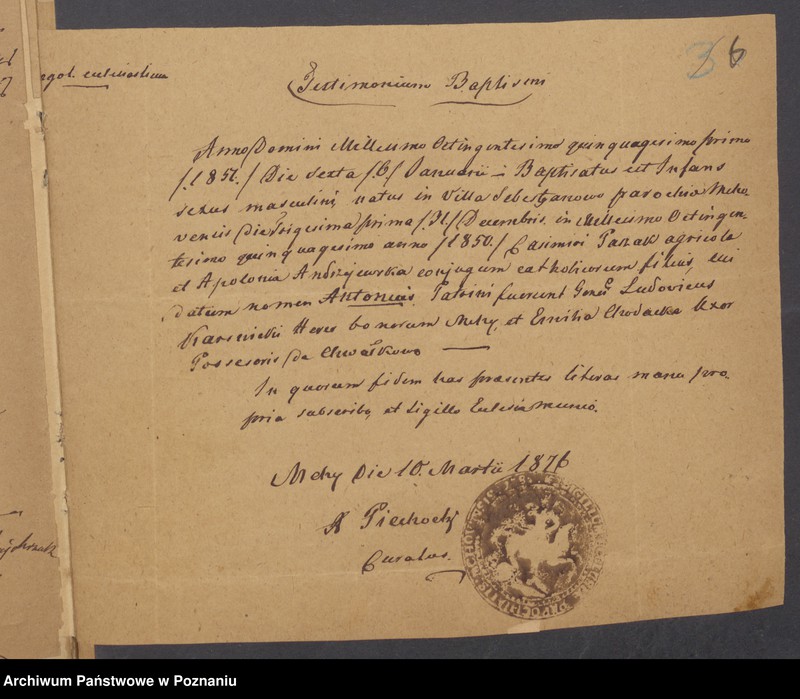 3 6
Testimonium Baptismi
Anno Domini Millesimo Octingentesimo quinquagesimo primo
/:1851:/ Die sexta /:6:/ Januarii – Baptisatus est Infans
sexus masculini, natus in Villa Sebestyanowo parochia Mcho-
vensis Die Trigesima prima /:31:/ Decembris in Millesimo Octingen-
tesimo quinquagesimo anno /:1850:/ Casimiri Pazak agricola
et Apolonia Andrzejewska conjugum catholicorum filius, cui
datum nomen Antonius. Patrini fuerunt Gen̄s Ludovicus
Karsnicki Heres bonorum Mchy, et Emilia Chodacka Uxor
Possesoris de Chwałkowo —
In quorum fidem has præsentes literas manu pro-
pria subscribo, et Sigillo Eclesiæ munio.
Mchy Die 10. Martii 1876
Piechocki
Curatus.
Archiwum Państwowe w Poznaniu